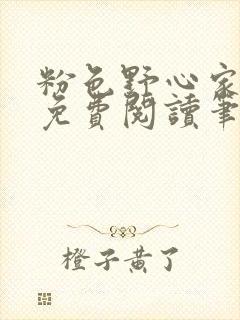 粉色野心家
免費閱讀筆
橙子黃了